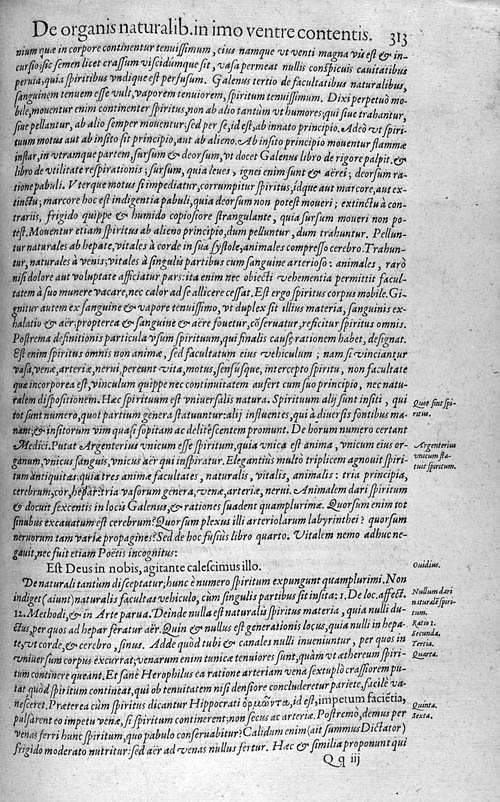 De organis naturalib. in imo ventre contentis. 313
nium quæ in corpore continentur tenuissimum, eius namque vt venti magna vis est & in-
cursio: sic semen licet crassum viscidumque sit, vasa permeat nullis conspicuis cauitatibus
peruia, quia spiritibus vndique est perfusum. Galenus tertio de facultatibus naturalibus,
sanguinem tenuem esse vult, vaporem tenuiorem, spiritum tenuissimum. Dixi perpetuò mo-
bile, mouentur enim continenter spiritus, non ab alio tantùm vt humores, qui siue trahantur,
siue pellantur, ab alio semper mouentur: sed per se, id est, ab innato principio. Adeò vt spiri-
tuum motus aut ab insito sit principio, aut ab alieno. Ab insito principio mouentur flammæ
instar, in vtramque partem, sursum & deorsum, vt docet Galenus libro de rigore palpit. &
libro de vtilitate respirationis; sursum, quia leues, ignei enim sunt & aërei; deorsum ra-
tione pabuli. Vterque motus si impediatur, corrumpitur spiritus, idque aut marcore, aut ex-
tinctu; marcore hoc est indigentia pabuli, quia deorsum non potest moueri; extinctu à con-
trariis, frigido quippe & humido copiosiore strangulante, quia sursum moueri non po-
test. Mouentur etiam spiritus ab alieno principio, dum pelluntur, dum trahuntur. Pellun-
tur naturales ab hepate, vitales à corde in sua systole, animales compresso cerebro. Trahun-
tur, naturales à venis; vitales à singulis partibus cum sanguine arterioso: animales, rarò
nisi dolore aut voluptate afficiatur pars: ita enim nec obiecti vehementia permittit facul-
tatem à suo munere vacare, nec calor ad se allicere cessat. Est ergo spiritus corpus mobile. Gi-
gnitur autem ex sanguine & vapore tenuissimo, vt duplex sit illius materia, sanguinis ex-
halatio & aër; propterea & sanguine & aëre fouetur, cōseruatur, reficitur spiritus omnis.
Postrema definitionis particula vsum spirituum, qui finalis causæ rationem habet, designat.
Est enim spiritus omnis non anima, sed facultatum eius vehiculum; nam si vinciantur
vasa, venæ, arteriæ, nerui, pereunt vita, motus, sensusque, intercepto spiritu, non facultate
quæ incorporea est, vinculum quippe nec continuitatem aufert cum suo principio, nec natu-
ralem dispositionem. Hæc spirituum est vniuersalis natura. Spirituum alij sunt insiti, qui
tot sunt numero, quot partium genera statuuntur: alij influentes, qui à diuersis fontibus ma-
nant, & insitorum vim quasi sopitam ac delitescentem promunt. De horum numero certant
Medici. Putat Argenterius vnicum esse spiritum, quia vnica est anima, vnicum eius or-
ganum, vnicus sanguis, vnicus aër qui inspiratur. Elegantiùs multò triplicem agnouit spiri-
tum antiquitas; quia tres animæ facultates, naturalis, vitalis, animalis: tria principia,
cerebrum, cor, hepar: tria vasorum genera, venæ, arteriæ, nerui. Animalem dari spiritum
& docuit sexcentis in locis Galenus, & rationes suadent quamplurimæ. Quorsum enim tot
sinubus excauatum est cerebrum? Quorsum plexus illi arteriolarum labyrinthei? quorsum
neruorum tam variæ propagines? Sed de hoc fusiùs libro quarto. Vitalem nemo adhuc ne-
gauit, nec fuit etiam Poëtis incognitus:
Est Deus in nobis, agitante calescimus illo.
De naturali tantùm disceptatur; hunc è numero spirituum expungunt quamplurimi. Non
indiget (aiunt) naturalis facultas vehiculo, cùm singulis partibus sit insita: 1. De loc. affect.
12. Methodi, & in Arte parua. Deinde nulla est naturalis spiritus materia, quia nulli du-
ctus, per quos ad hepar feratur aër. Quin & nullus est generationis locus, quia nulli in hepa-
te, vt corde, & cerebro, sinus. Adde quòd tubi & canales nulli inueniuntur, per quos in
vniuersum corpus excurrat; venarum enim tunicæ tenuiores sunt, quàm vt æthereum spiri-
tum continere queant. Et sanè Herophilus ea ratione arteriam vena sextuplò crassiorem pu-
tat quòd spiritum contineat, qui ob tenuitatem nisi densiore concluderetur pariete, facilè va-
nesceret. Præterea cùm spiritus dicantur Hippocrati ὁρμῶντα, id est, impetum facientia,
pulsarent eo impetu venæ, si spiritum continerent; non secus ac arteriæ. Postremò, demus per
venas ferri hunc spiritum, quo pabulo conseruabitur? Calidum enim (ait summus Dictator)
frigido moderato nutritur: sed aër ad venas nullus fertur. Hæc & similia proponunt qui
Qq iij
Quot sint spi-
ritus.
Argenterius
vnicum sta-
tuit spiritum.
Ouidius.
Nullum dari
naturalē spiri-
tum.
Ratio 1.
Secunda.
Tertia.
Quarta.
Quinta.
Sexta.